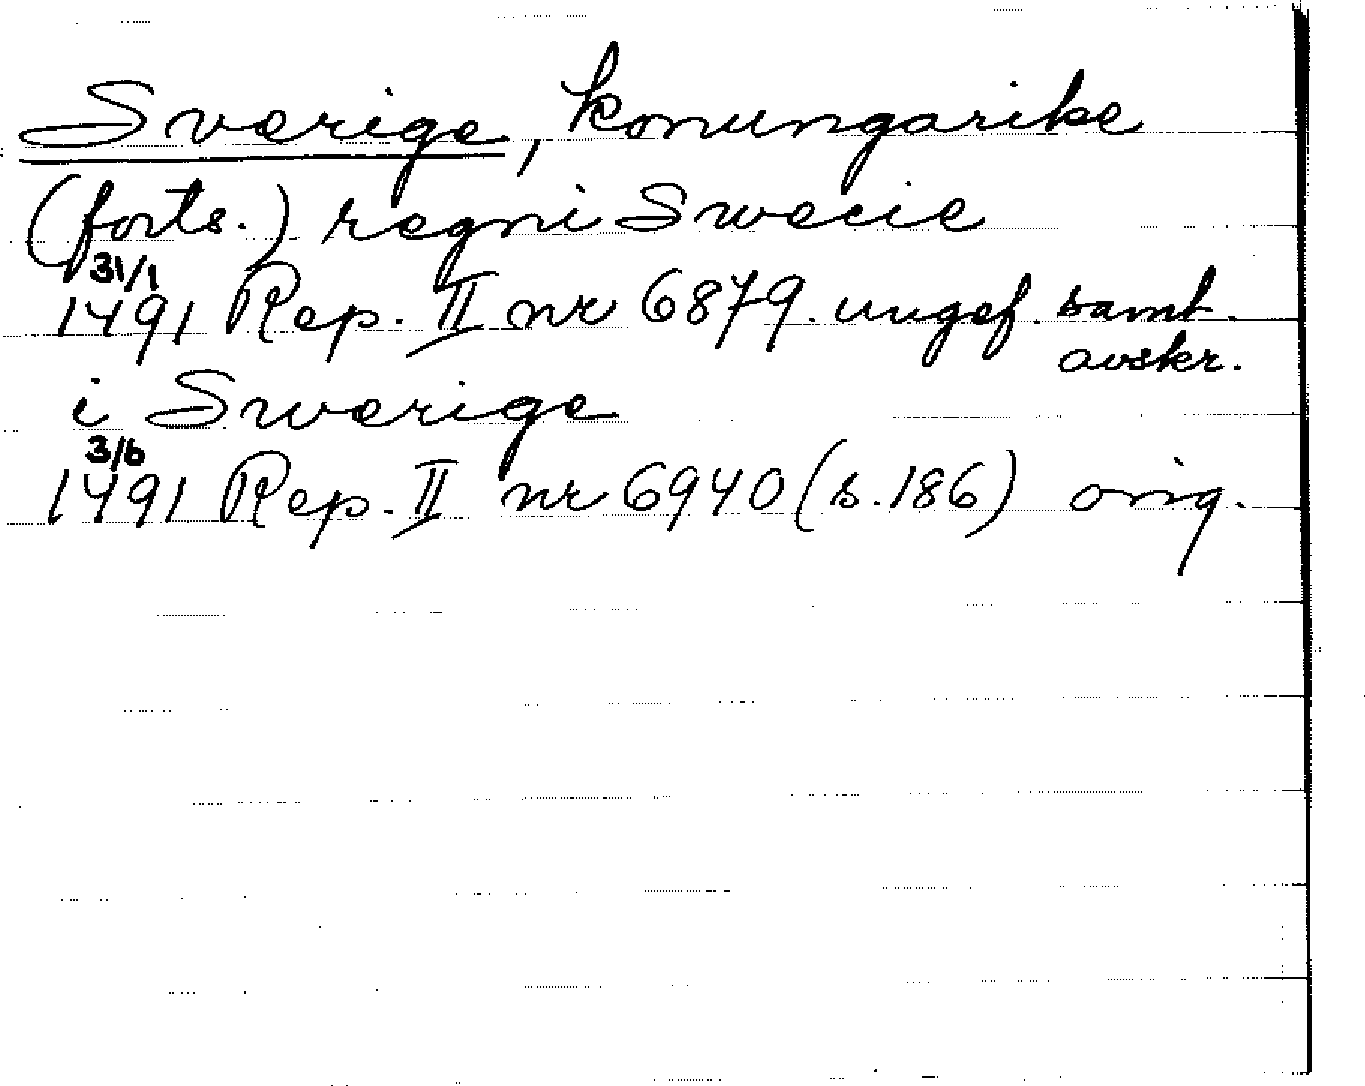 Sverige, konungarike
(forts.) regni Swecie
31/1
1491 Rep. II nr 6879. ungef. samt.
avskr.
i Swerige
3/6
1491 Rep. II nr 6940 (s. 186) orig.